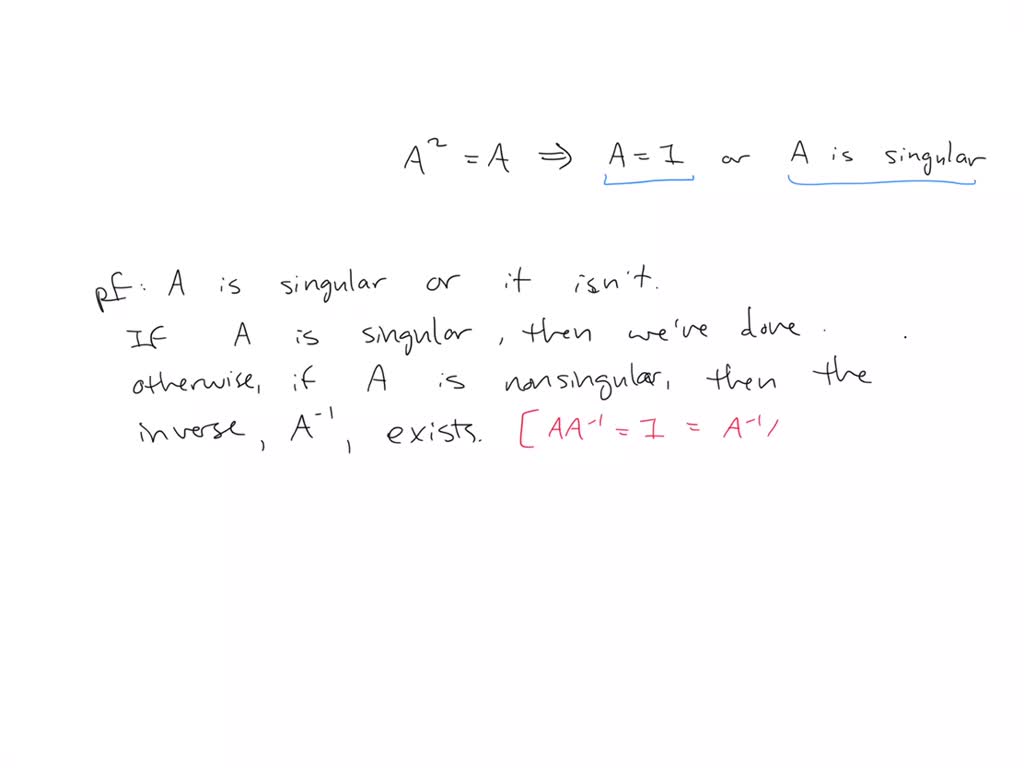 A² = A ⇒ A = I or A is singular
pf: A is singular or it isn't.
If A is singular, then we've done.
otherwise, if A is nonsingular, then the
inverse, A⁻¹, exists. [AA⁻¹ = I = A⁻¹